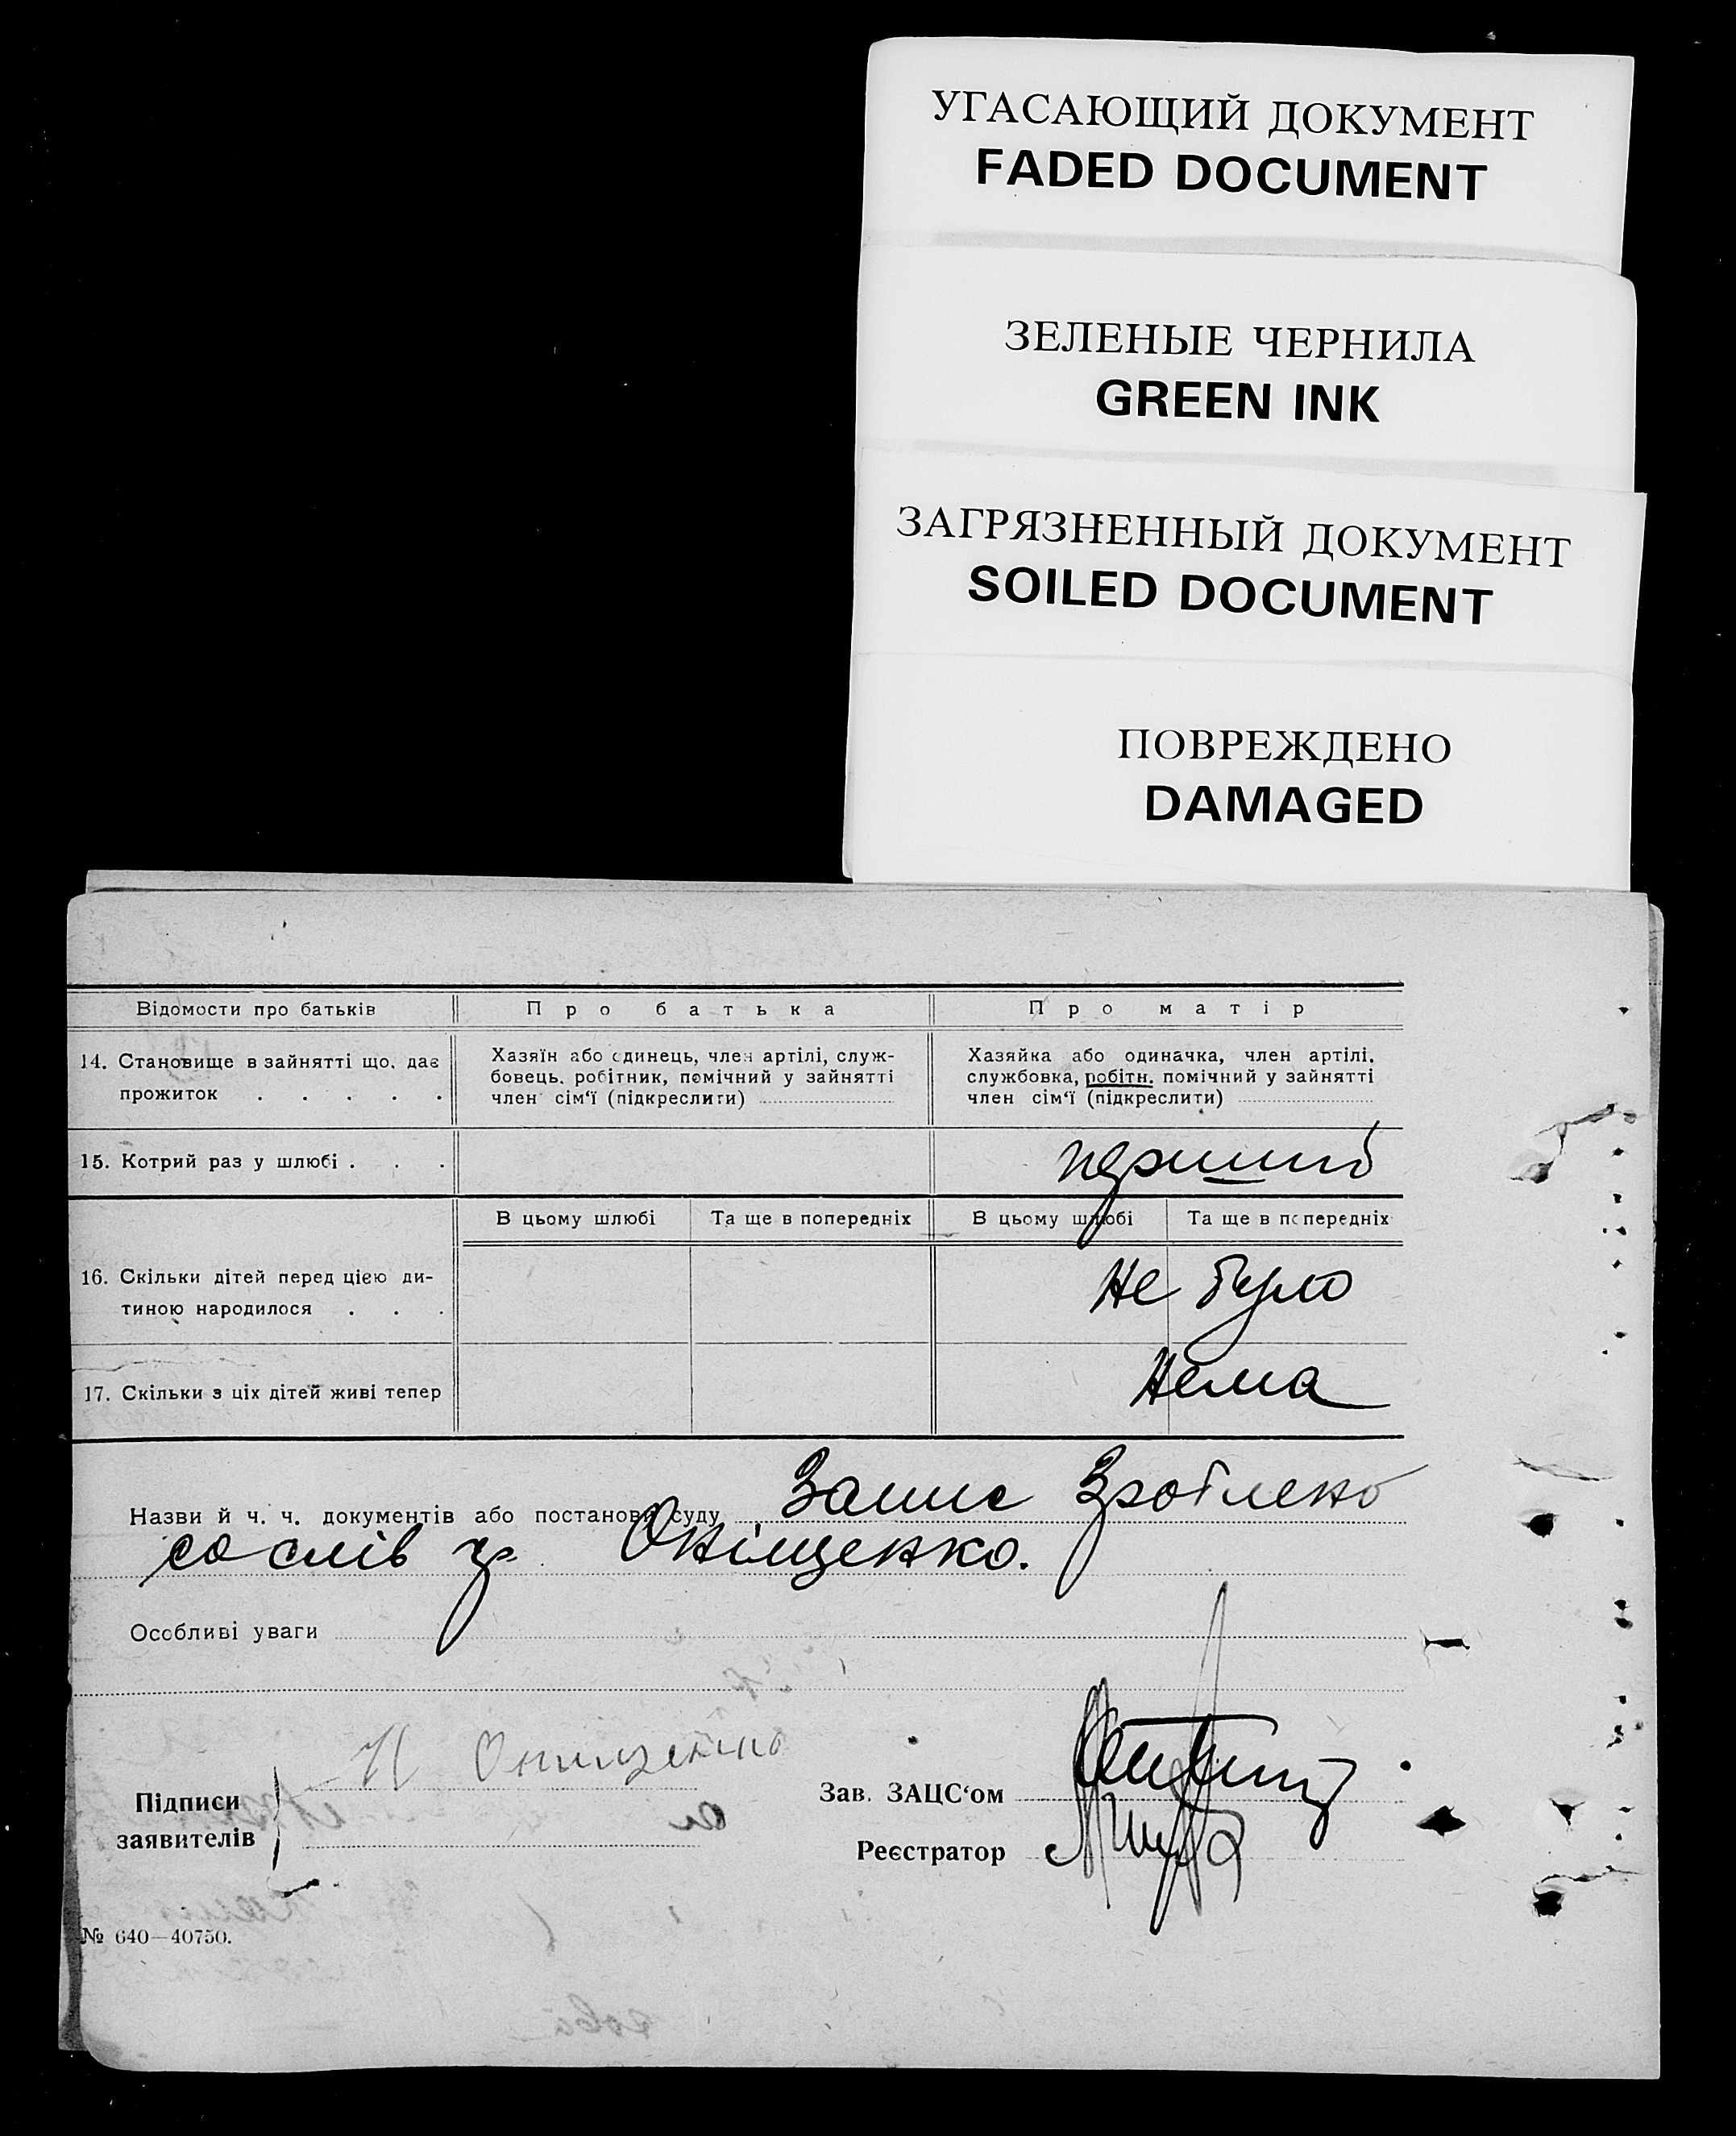 УГАСАЮЩИЙ ДОКУМЕНТ
FADED DOCUMENT
ЗЕЛЕНЫЕ ЧЕРНИЛА
GREEN INK
ЗАГРЯЗНЕННЫЙ ДОКУМЕНТ
SOILED DOCUMENT
ПОВРЕЖДЕНО
DAMAGED
Відомости про батьків
Про батька
Про матір
14. Становище в зайнятті що, дає
прожиток . . . . .
Хазяїн або єдинець, член артілі, служ-
бовець. робітник, помічний у зайнятті
член сім'ї (підкреслити)
Хазяйка або одиначка, член артілі.
службовка, робітн. помічний у зайнятті
член сім'ї (підкреслити)
15. Котрий раз у шлюбі . . .
перший
В цьому шлюбі
Та ще в попередніх
В цьому шлюбі
Та ще в попередніх
16. Скільки дітей перед цією ди-
тиною народилося . . .
Не було
17. Скільки з ціх дітей живі тепер
Нема
Назви й ч. ч. документів або постанови суду Запис Зроблено
со слів гр. Оніщенко.
Особливі уваги
Підписи
заявителів
Н Онищенко
Зав. ЗАЦС'ом
Реєстратор
№ 640—40750.